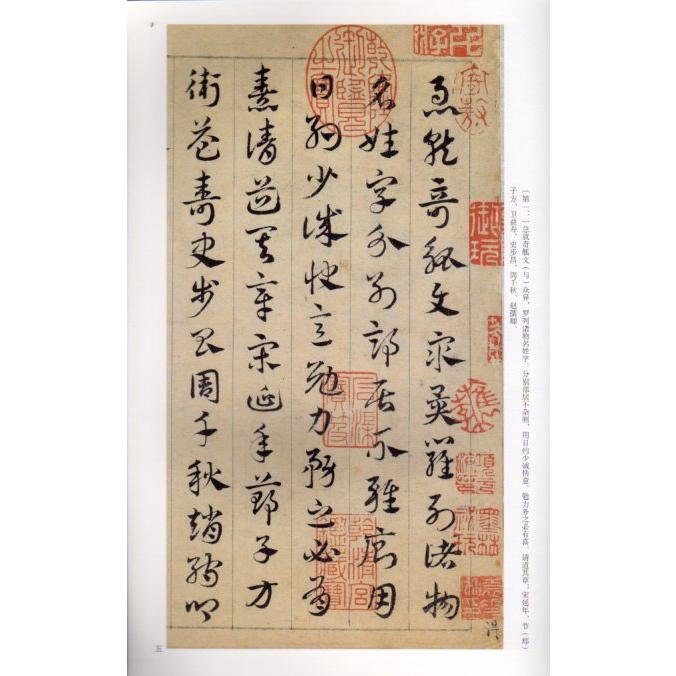 急就奇觚文眾異羅列諸物
名姓字分別部居不雜廁用
日約少誠快意勉力務之必有
熹請道其章宋延年節子方
衛益壽史步昌周千秋趙孺卿
〔第一：〕急就奇觚文（与）众异，罗列诸物名姓字，分别部居不杂厕，用日约少诚快意，勉力务之必有熹，请道其章：宋延年、节（郑）
子方、卫益寿、史步昌、周千秋、赵孺卿、
五